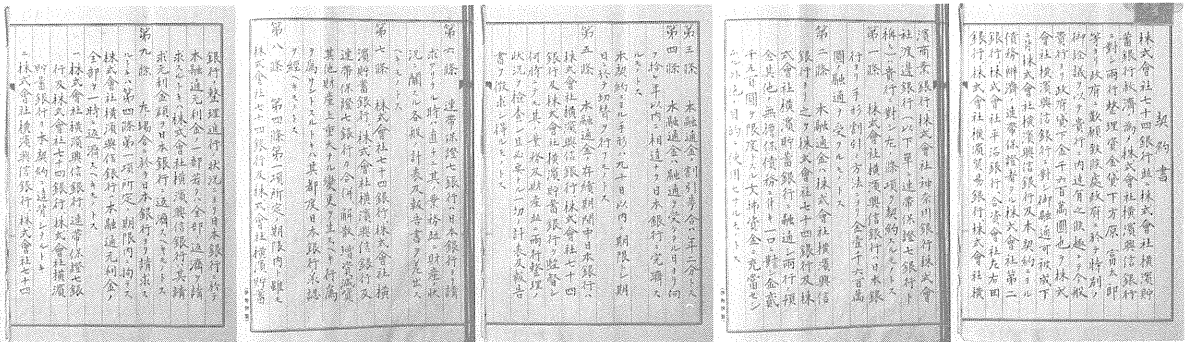 契約書
株式會社七十四銀行並ニ株式會社横濱貯
蓄銀行救濟ノ為メ株式會社横濱興信銀行
ニ對シ兩行整理資金貸下方原富太郎
等ヨリ政府ニ歎願致候處政府ニ於テ特別ノ
御詮議ヲ以テ貴行内
貴行ヨリ
會社横濱興信銀行ニ對シ御融通可被成下
ニ付株式會社横濱興信銀行及本契約ニヨル
債務辨濟ノ連帶保證者タル株式會社第二
銀行株式會社平沼銀行合資會社左右田
銀行株式會社横濱貿易銀行株式會社横
濱商業銀行株式會社神奈川銀行株式會
社渡邊銀行(以下單ニ連帶保證七銀行ト
稱ス)ハ貴行ニ對シ左ノ條項ヲ契約スルモノトス
第一條 株式會社横濱興信銀行ハ日本銀
行ヨリ手形割引ノ方法ニヨリ金壹千六百萬
圓ノ融通ヲ受クルモノトス
第二條 本融通金ハ株式會社横濱興信
銀行ヨリ之ヲ株式會社七十四銀行及株
式會社横濱貯蓄銀行ニ融通シ兩行預
金其他ノ無擔保債務
千五百圓ヲ限度トシ
ニ外他ノ目的ニ使用セサルモノトス
第三條 本融通金ノ割引歩合ハ年二分トス
第四條 本融通金ハ融通ヲ受ケタル日ヨリ向
フ拾ヶ年以内ニ相違ナク日本銀行ニ完濟ス
ルモノトス
本契約ニヨル手形ハ九十日以内ノ期限トシ期
日ニ於テ切替ヲ行フモノトス
第五條 本融通金ノ存續期間中日本銀行ハ
株式會社横濱興信銀行株式會社七十四
銀行及株式會社横濱貯蓄銀行ヲ監督シ
何時ニテモ其業務及財産並ニ兩行整理ノ
状況ヲ檢査シ且必要ナル一切ノ計表及報告
書ヲ徴求シ得ルモノトス
第六條 連帶保證七銀行ハ日本銀行ノ請
求アリタル時ハ直ニ其ノ業務並ニ財産状
況ニ關スル各般ノ計表及報告書ヲ差出ス
ヘキモノトス
第七條 株式會社七十四銀行株式會社横
濱貯蓄銀行株式會社横濱興信銀行又
連帶保證七銀行ハ合併解散増資減資
其他財産上重大ナル變更ヲ生スヘキ行為
ヲ為サントスルトキハ其都度日本銀行ノ承認
ヲ經ヘキモノトス
第八條 第四條第一項所定ノ期限内ト雖モ
株式會社七十四銀行及株式會社横濱貯蓄
銀行ノ整理進行ノ状況ニヨリ日本銀行ニ於テ
本融通元利金ノ一部若クハ全部ノ返濟ヲ請
求スルトキハ株式會社横濱興信銀行ハ其請
求元利金額ヲ日本銀行ニ返濟スヘキモノトス
第九條 左ノ場合ニ於テ日本銀行ヨリ請求ス
ルトキハ第四條第一項所定ノ期限内ニ拘ラス
株式會社横濱興信銀行ハ本融通元利金ノ
全部ヲ一時ニ返濟スヘキモノトス
一 株式會社横濱興信銀行連帶保證七銀
行及株式會社七十四銀行株式會社横濱
貯蓄銀行ニ於テ本契約ニ違背シタルトキ
二 株式會社横濱興信銀行株式會社七十四